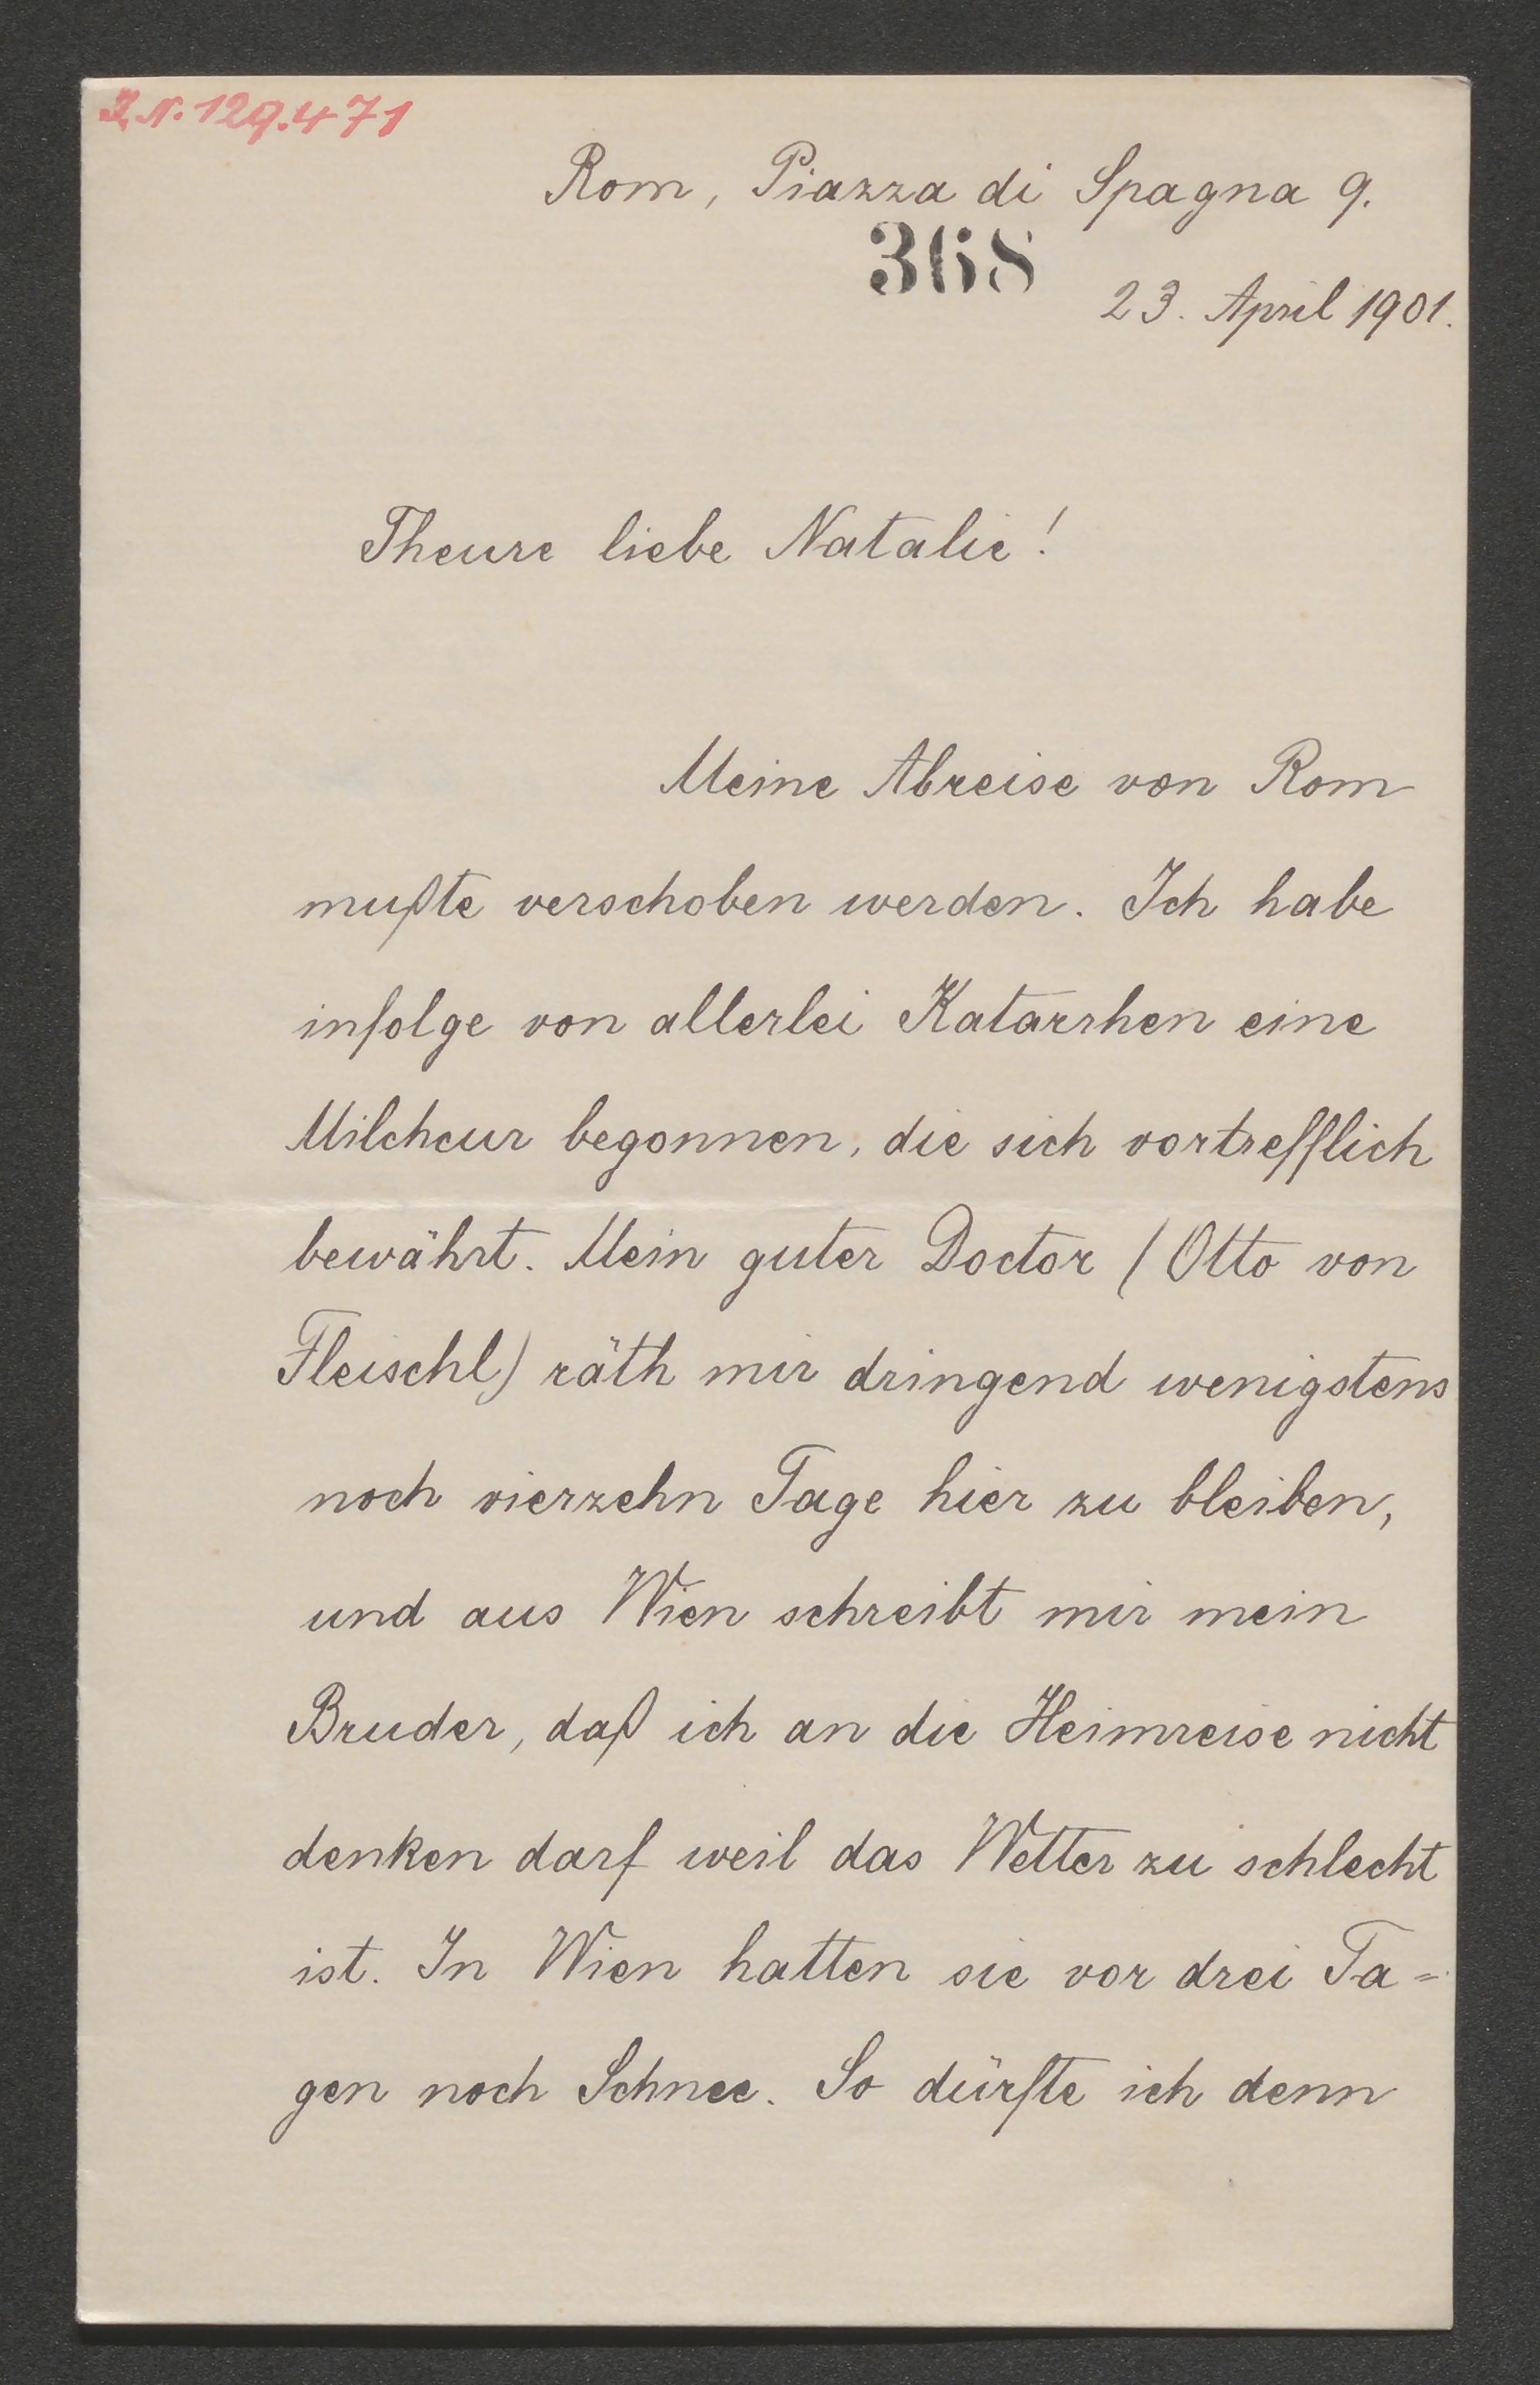 I. N. 129.471
Rom, Piazza di Spagna 9.
368
23. April 1901.
Theure liebe Natalie!
Meine Abreise von Rom
mußte verschoben werden. Ich habe
infolge von allerlei Katarrhen eine
Milchcur begonnen, die sich vortrefflich
bewährt. Mein guter Doctor (Otto von
Fleischl) räth mir dringend wenigstens
noch vierzehn Tage hier zu bleiben,
und aus Wien schreibt mir mein
Bruder, daß ich an die Heimreise nicht
denken darf weil das Wetter zu schlecht
ist. In Wien hatten sie vor drei Ta=
gen noch Schnee. So dürfte ich denn